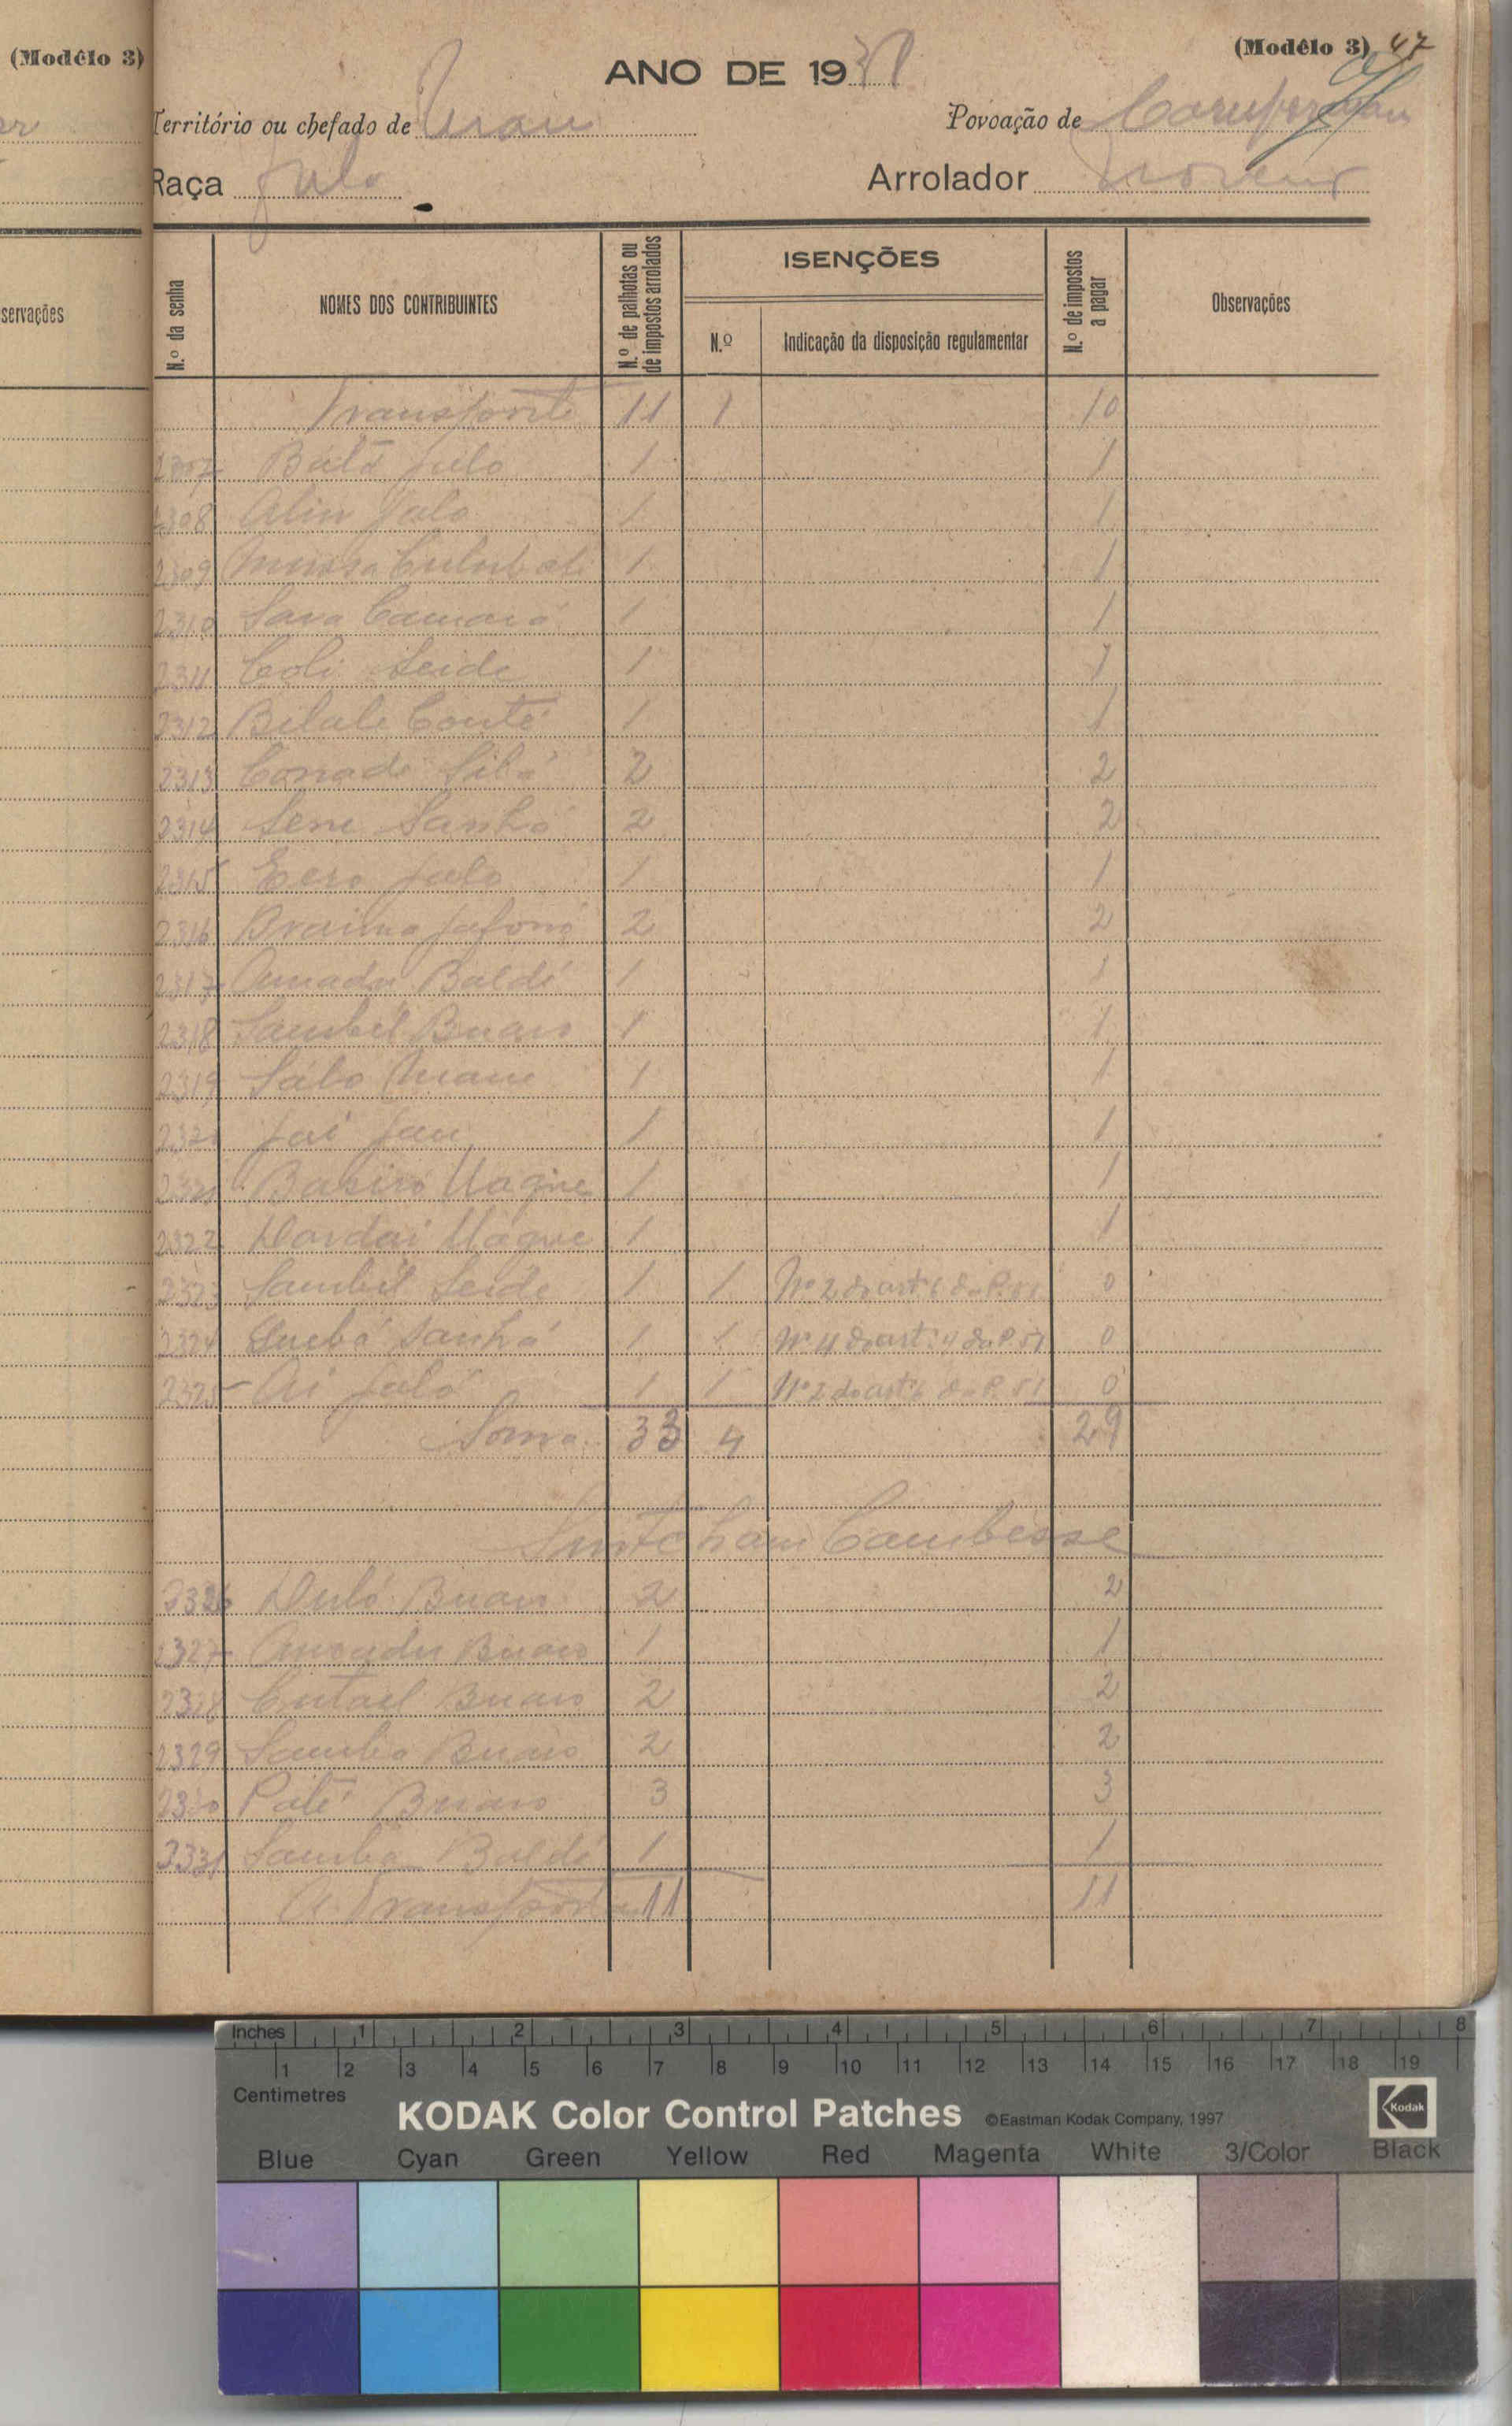 (Modêlo 3)
servações
(Modêlo 3) 47
ANO DE 19
Território ou chefado de
Povoação de
Raça Julo
Arrolador
N.º da senha
NOMES DOS CONTRIBUINTES
N.º de palhotas ou de impostos arrolados
ISENÇÕES
N.º
Indicação da disposição regulamentar
N.º de impostos a pagar
Observações
Transporte 11 1 10
2307 Julo 1 1
2308 Alin Jalo 1 1
2309 1 1
2310 Sara Camará 1 1
2311 Coli Seide 1 1
2312 Bilali Conté 1 1
2313 2 2
2314 Sene Sanhá 2 2
2315 Jalo 1 1
2316 Braima 2 2
2317 Amadu Baldé 1 1
2318 Sambél Buaro 1 1
2319 Sabo Mane 1 1
Jai Jau 1 1
Uague 1 1
2322 Uague 1 1
2323 Sambél Seide 1 1 Nº 2 do art. 6 do P. 51 0
2324 Sanhá 1 1 Nº 4 do art. 4 do P. 51 0
2325 Ai Jaló 1 1 Nº 2 do art. 6 do P. 51 0
Soma 33 4 29
Sintcham Cambesse
2326 Buaro 2 2
2327 Amadu Buaro 1 1
2328 Buaro 2 2
2329 Samba Buaro 2 2
2330 Paté Buaro 3 3
2331 Samba Baldé 1 1
A Transportar 11 11
Inches 1 2 3 4 5 6 7 8
1 2 3 4 5 6 7 8 9 10 11 12 13 14 15 16 17 18 19
Centimetres
KODAK Color Control Patches ©Eastman Kodak Company, 1997 Kodak
Blue Cyan Green Yellow Red Magenta White 3/Color Black